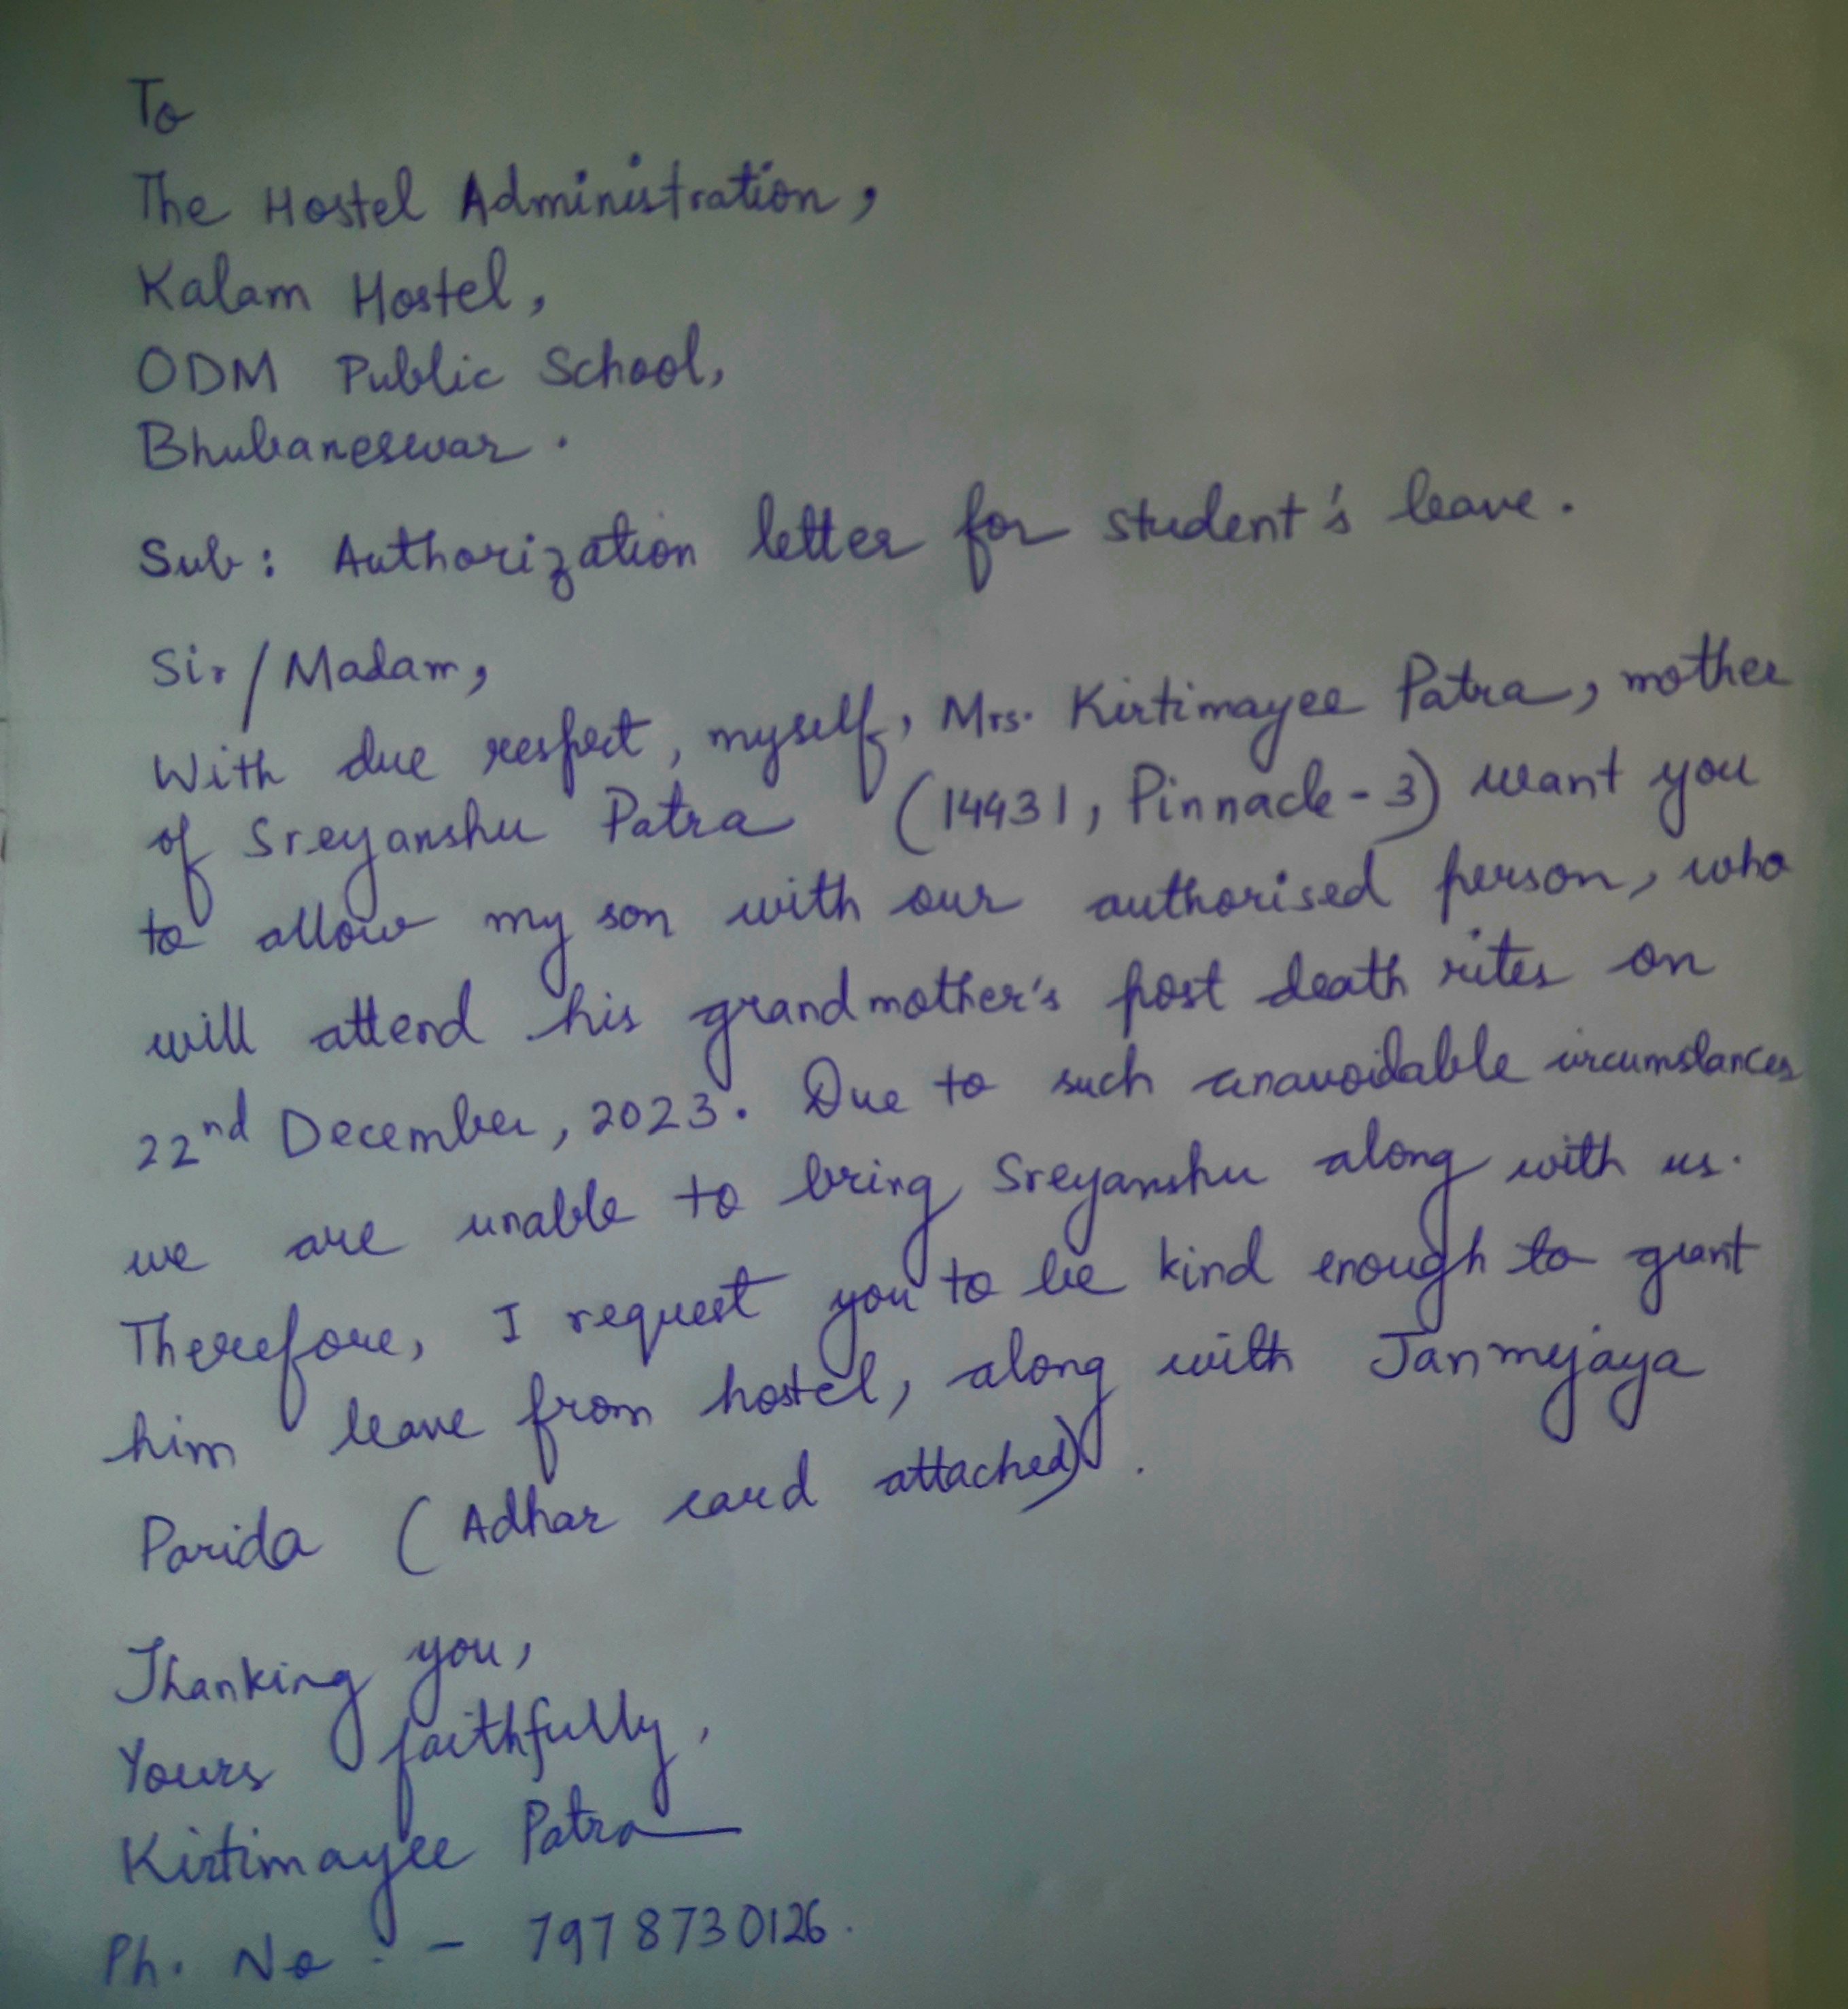 To
The Hostel Administration,
Kalam Hostel,
ODM Public School,
Bhubaneswar.
Sub: Authorization letter for student's leave.
Sir/Madam,
With due respect, myself, Mrs. Kirtimayee Patra, mother
of Sreyanshu Patra (14431, Pinnacle-3) want you
to allow my son with our authorised person, who
will attend his grandmother's post death rites on
22nd December, 2023. Due to such unavoidable circumstances
we are unable to bring Sreyanshu along with us.
Therefore, I request you to be kind enough to grant
him leave from hostel, along with Janmejaya
Parida (Adhar card attached).
Thanking you,
Yours faithfully,
Kirtimayee Patra
Ph. No. - 7978730126.